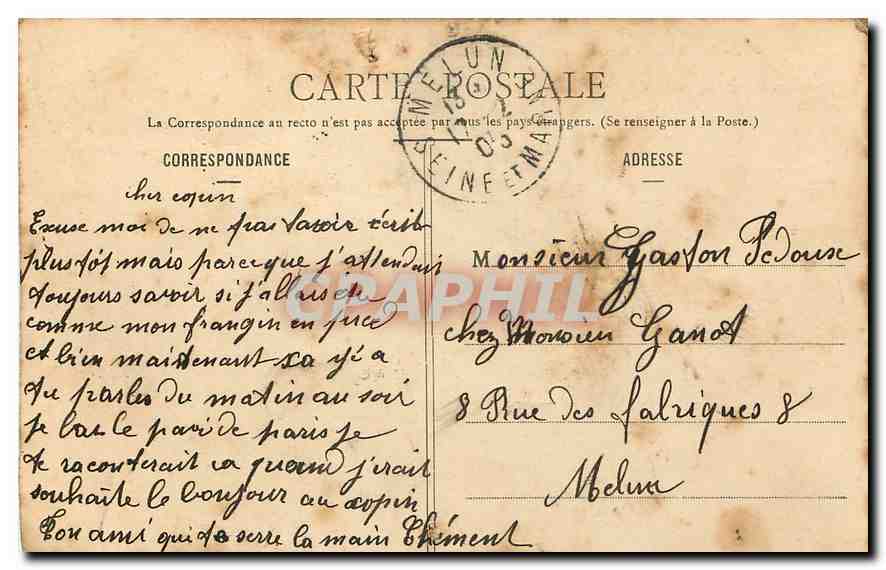 CARTE POSTALE
La Correspondance au recto n'est pas acceptée par tous les pays étrangers. (Se renseigner à la Poste.)
CORRESPONDANCE
ADRESSE
MELUN
SEINE ET MARNE
cher copin
Excuse moi de ne pas t'avoir écrit
plus tôt mais parce que j'attendait
toujours savoir si j'allais
comme mon frangin en
et bien maintenant sa yé a
tu parles du matin au soir
je bas le pavé de paris je
te raconterait ca quand j'irait
souhaite le bonjour au copin
Ton ami qui te serre la main Clément
Monsieur Gaston Pedoux
chez Monsieur Ganot
8 Rue des fabriques 8
Melun
CPAPHIL